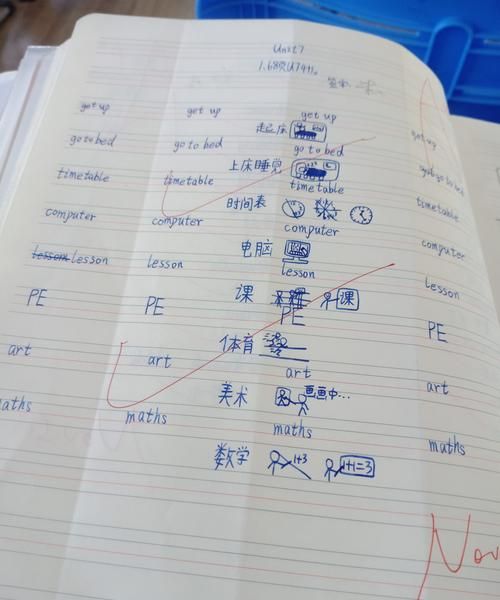 Unit7
get up get up get up get up
起床
go to bed go to bed go to bed go to bed
上床睡觉
timetable timetable timetable timetable
时间表
computer computer computer computer
电脑
lesson lesson lesson lesson lesson
课 课
PE PE PE PE
体育
art art art art
美术 画画中...
maths maths maths maths
数学 1+3 1+1=3